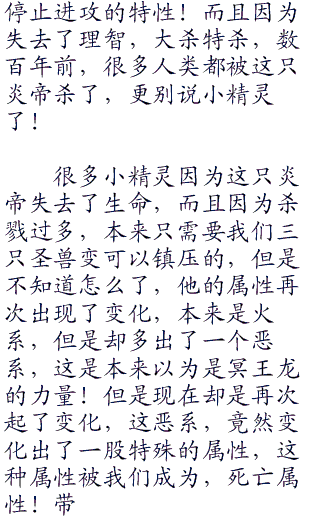 停止进攻的特性！而且因为
失去了理智，大杀特杀，数
百年前，很多人类都被这只
炎帝杀了，更别说小精灵
了！
很多小精灵因为这只炎
帝失去了生命，而且因为杀
戮过多，本来只需要我们三
只圣兽变可以镇压的，但是
不知道怎么了，他的属性再
次出现了变化，本来是火
系，但是却多出了一个恶
系，这是本来以为是冥王龙
的力量！但是现在却是再次
起了变化，这恶系，竟然变
化出了一股特殊的属性，这
种属性被我们成为，死亡属
性！带